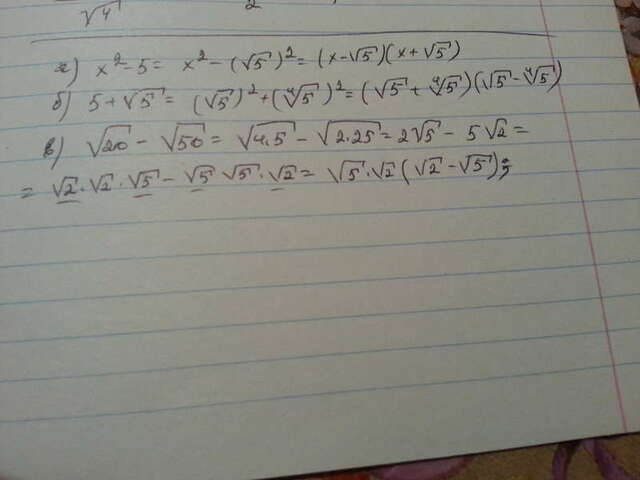 √4 2
а) x² - 5 = x² - (√5)² = (x - √5)(x + √5)
б) 5 + √5 = (√5)² + (⁴√5)² = (√5 + ⁴√5)(√5 - ⁴√5)
в) √20 - √50 = √4.5 - √2.25 = 2√5 - 5√2 =
= √2 . √2 . √5 - √5 √5 . √2 = √5 . √2 (√2 - √5);